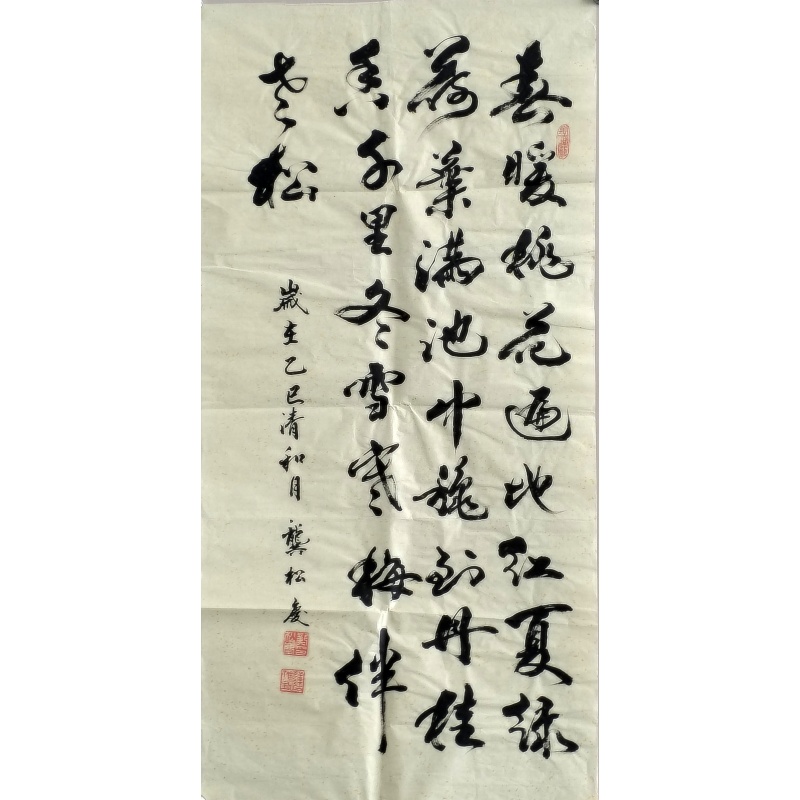 春暖桃花遍地红夏绿
荷叶满池中秋到丹桂
香千里冬雪寒梅伴
老松
岁在乙巳清和月 龚松庆